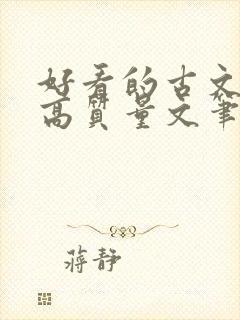 好看的古文
高质量文笔
蒋静